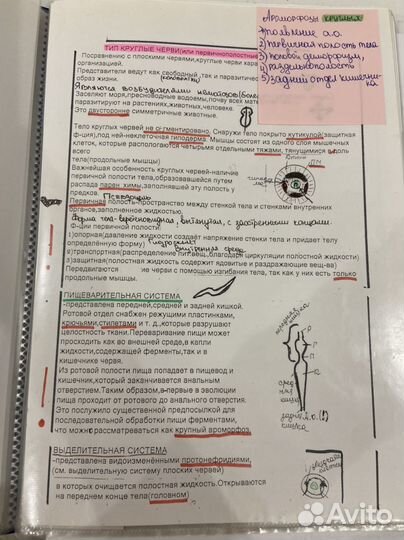 Ароморфозы круглых
появление а.о.
2) первичная полость тела
3) половой деморфизм,
раздельнополость
5) задний отдел кишечни-
ка
ТИП КРУГЛЫЕ ЧЕРВИ(или первичнополостные
Посравнению с плоскими червями,круглые черви хара
организацией.
Представители ведут как свободный,так и паразитиче
образ жизни.
Являются возбудителями нематодов(боле
Заселяют моря,пресноводные водоемы,почву всех мате
паразитируют на растениях,животных,человеке.
Это двусторонне симметричные животные.
Тело круглых червей не сегментировано. Снаружи тело покрыто кутикулой(защитная
ф-ция),под ней-неклеточная гиподерма. Мышцы состоят из одного слоя мышечных
клеток, которые располагаются четырьмя отдельными тяжами, тянущимися вдоль
всего
тела(продольные мышцы)
Важнейшая особенность круглых червей-наличие
первичной полости тела,образовавшейся путем
распада парен химы,заполнявшей эту полость у
предков.
Первичная полость-пространство между стенкой тела и стенками внутренних
органов,заполненное жидкостью.
Форма тела-веретеновидная, вытянутая, с заостренными концами.
Ф-ции первичной полости:
)опорная(давление жидкости создаёт напряжение стенки тела и придает телу
определённую форму) Гидроскелет
внутренняя среда
)транспортная(распределение пит.вещ.,благодаря циркуляции полостной жидкости)
)защитная(полостная жидкость содержит ядовитые и раздражающие вещ-ва)
Передвигаются ие черви с помощью изгибания тела, так как у них есть только
продольные мышцы.
ПИЩЕВАРИТЕЛЬНАЯ СИСТЕМА
-представлена передней,средней и задней кишкой.
Ротовой отдел снабжен режущими пластинками,
крючьями,стилетами и т. д.,которые разрушают
целостность ткани.Переваривание пищи может
просходить как во внешней среде,в капли
жидкости,содержащей ферменты,так и в
кишечнике червя.
Из ротовой полости пища попадает в пищевод и
кишечник,который заканчивается анальным
отверстием.Таким образом,впервые в эволюции
пища проходит от ротового до анального отверстия.
Это послужило существенной предпосылкой для
последовательной обработки пищи ферментами,
что можно рассматреваться как крупный ароморфоз.
задн.
кишка
ВЫДЕЛИТЕЛЬНАЯ СИСТЕМА
-представлена видоизменёнными протонефридиями,
(см. выделительную систему плоских червей)
в которых очищается полостная жидкость.Открываются
на переднем конце тела(головном)
Avito